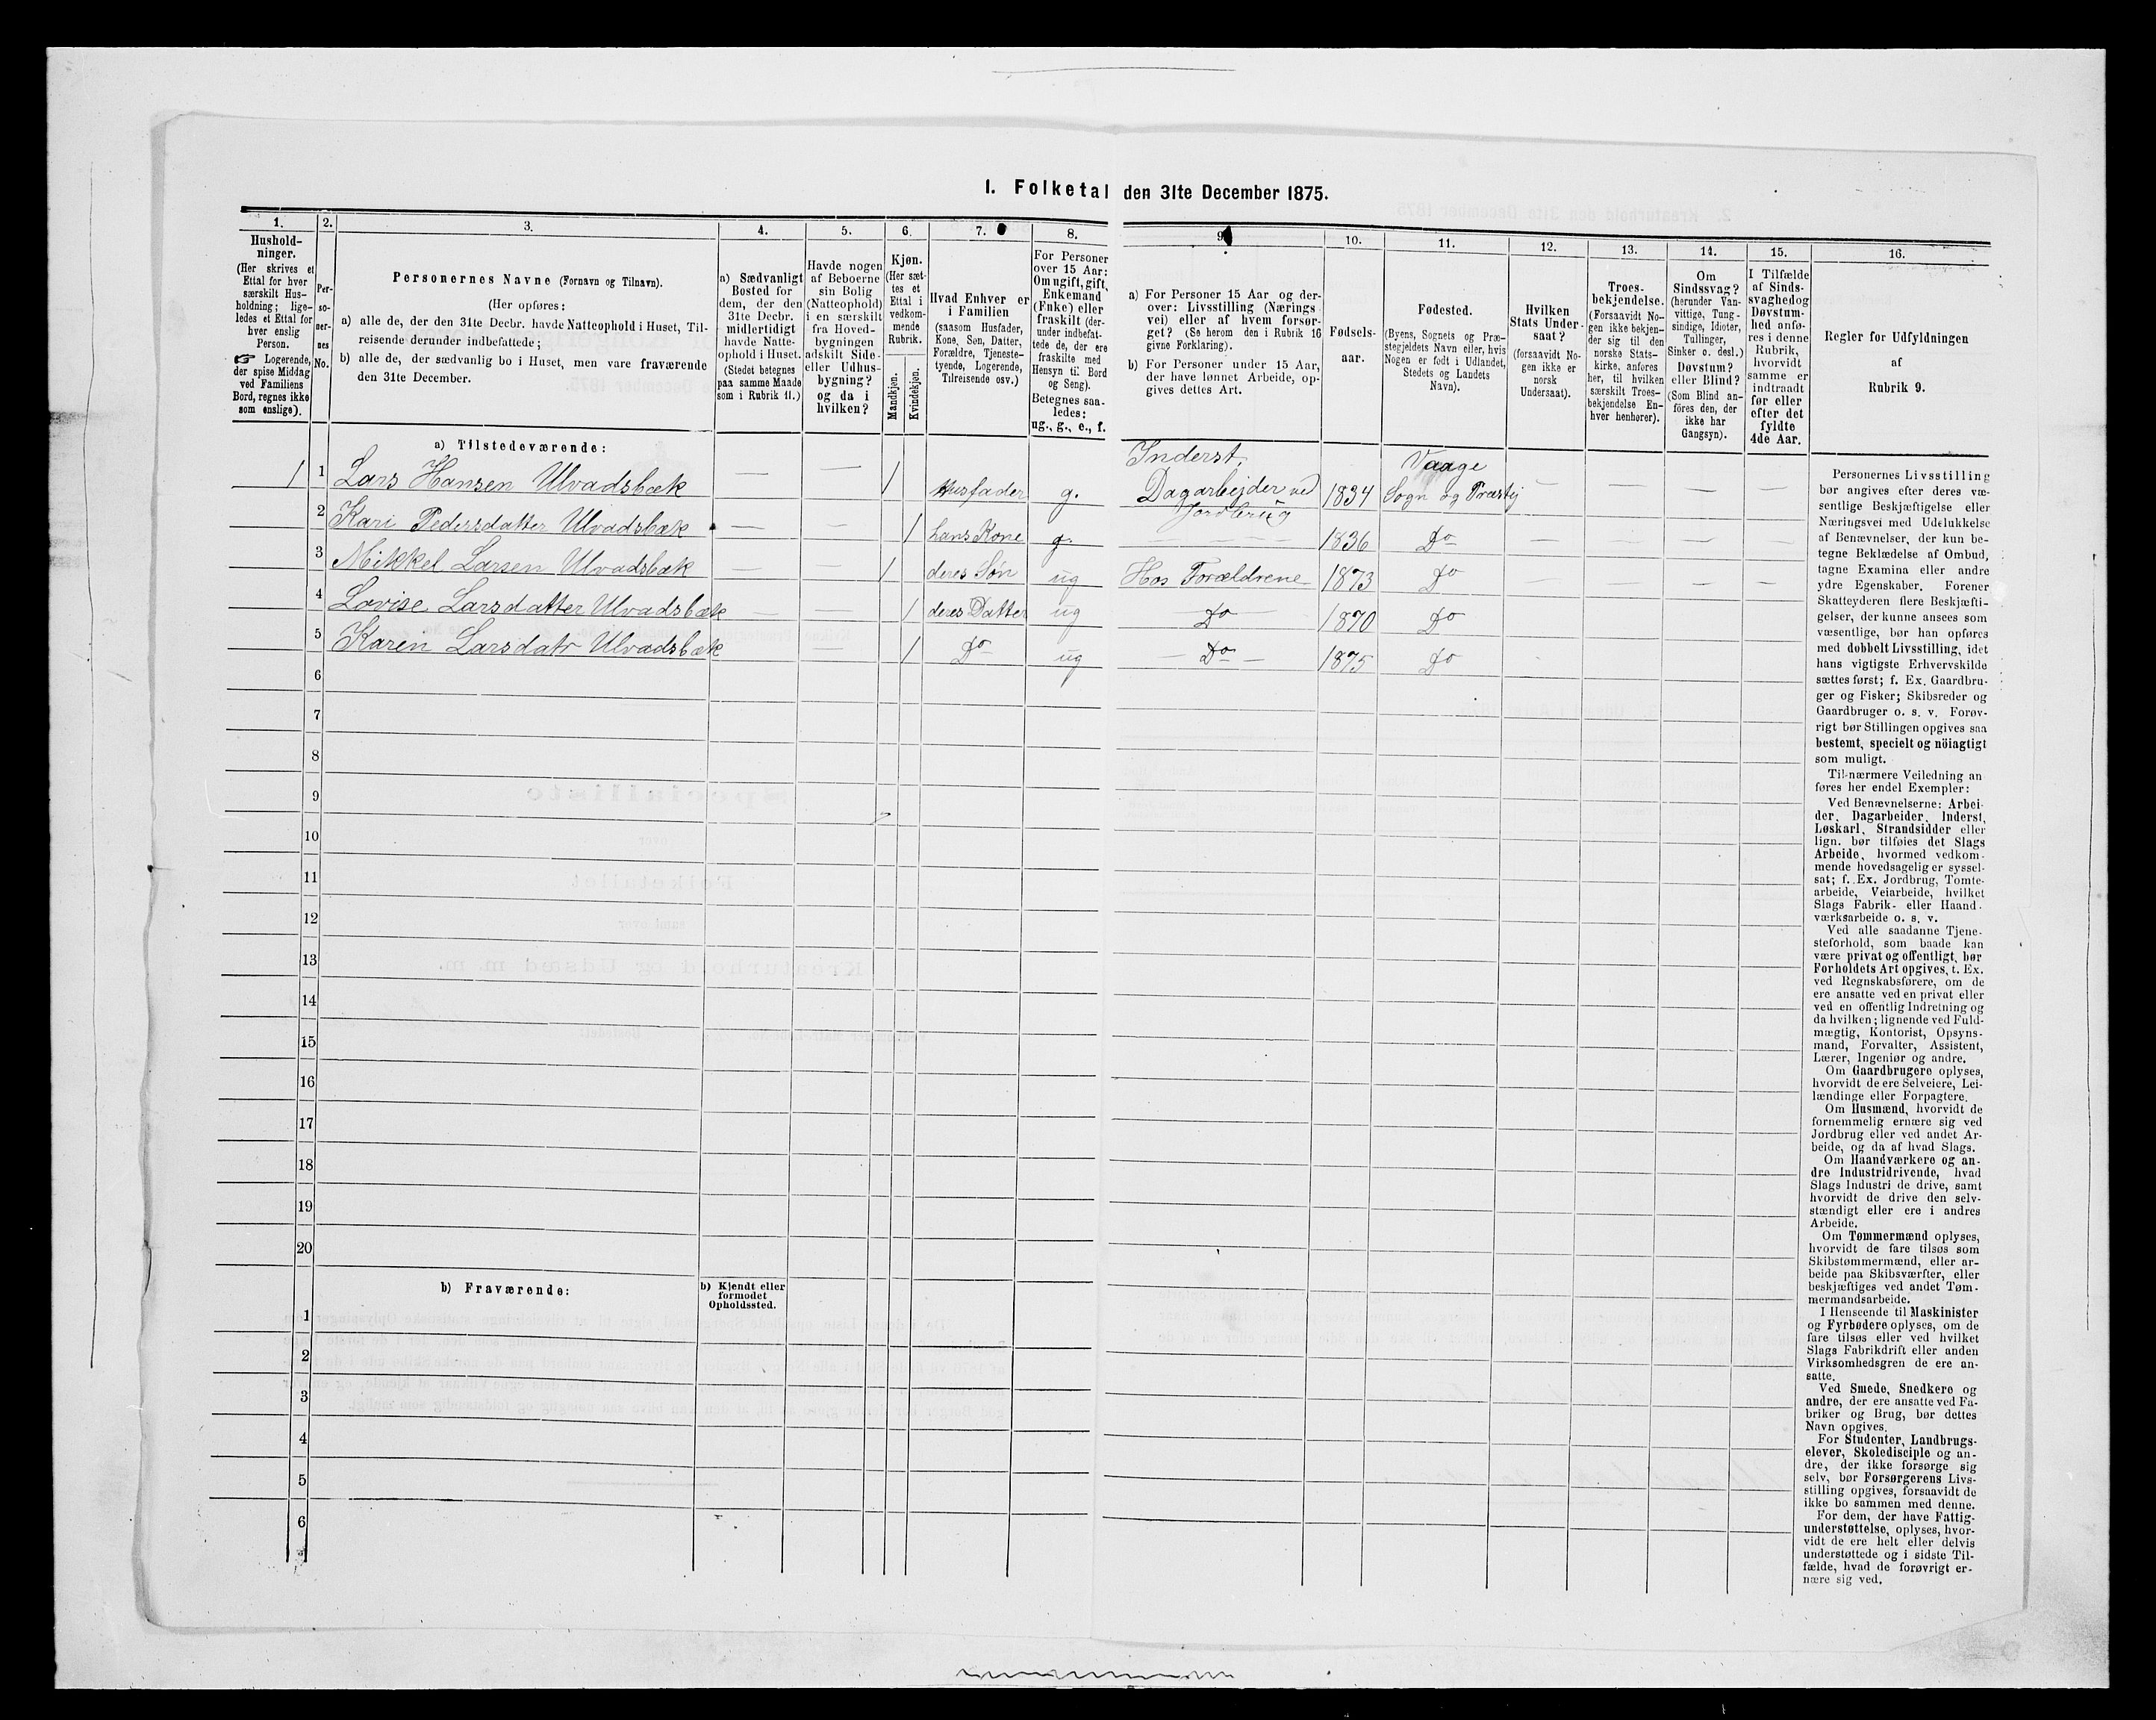 1. Folketal den 31te December 1875.
1.
Hushold-
ninger.
(Her skrives et
Ettal for hver
særskilt Hus-
holdning; lige-
ledes et Ettal for
hver enslig
Person.
☞ Logerende,
der spise Middag
ved Familiens
Bord, regnes ikke
som enslige).
2.
Per-
so-
ner-
nes
No.
3.
Personernes Navne (Fornavn og Tilnavn).
(Her opføres:
a) alle de, der den 31te Decbr. havde Natteophold i Huset, Til-
reisende derunder indbefattede;
b) alle de, der sædvanlig bo i Huset, men vare fraværende
den 31te December.
4.
a) Sædvanligt
Bosted for
dem, der den
31te Decbr.
midlertidigt
havde Natte-
ophold i Huset.
(Stedet betegnes
paa samme Maade
som i Rubrik 11.)
5.
Havde nogen
af Beboerne
sin Bolig
(Natteophold)
i en særskilt
fra Hoved-
bygningen
adskilt Side-
eller Udhus-
bygning?
og da i
hvilken?
6.
Kjøn.
(Her sæt-
tes et
Ettal i
vedkom-
mende
Rubrik.
Mandkjøn.
Kvindekjøn.
7.
Hvad Enhver er
i Familien
(saasom Husfader,
Kone, Søn, Datter,
Forældre, Tjeneste-
tyende, Logerende,
Tilreisende osv.)
8.
For Personer
over 15 Aar:
Om ugift, gift,
Enkemand
(Enke) eller
fraskilt (der-
under indbefat-
tede de, der ere
fraskilte med
Hensyn til Bord
og Seng).
Betegnes saa-
ledes:
ug., g., e., f.
9
a) For Personer 15 Aar og der-
over: Livsstilling (Nærings
vei) eller af hvem forsør-
get? (Se herom den i Rubrik 16
givne Forklaring).
b) For Personer under 15 Aar,
der have lønnet Arbeide, op-
gives dettes Art.
10.
Fødsels-
aar.
11.
Fødested.
(Byens, Sognets og Præ-
stegjeldets Navn eller, hvis
Nogen er født i Udlandet,
Stedets og Landets
Navn).
12.
Hvilken
Stats Under-
saat?
(forsaavidt No-
gen ikke er
norsk
Undersaat).
13.
Troes-
bekjendelse.
(Forsaavidt No-
gen ikke bekjen-
der sig til den
norske Stats-
kirke, anføres
her, til hvilken
særskilt Troes-
bekjendelse En-
hver henhører).
14.
Om
Sindssvag?
(herunder Van-
vittige, Tung-
sindige, Idioter,
Tullinger,
Sinker o. desl.)
Døvstum?
eller Blind?
(Som Blind an-
føres den, der
ikke har
Gangsyn).
15.
I Tilfælde
af Sinds-
svaghedog
Døvstum-
hed anfø-
res i denne
Rubrik,
hvorvidt
samme er
indtraadt
før eller
efter det
fyldte
4de Aar.
16.
Regler for Udfyldningen
af
Rubrik 9.
a) Tilstedeværende:
Inderst,
1 1 Lars Hansen Ulvadsbæk — — 1 Husfader g. Dagarbejder ved Jordbrug 1834 Vaage Sogn og Præstej — — — —
2 Kari Pedersdatter Ulvadsbæk — — 1 hans Kone g. — — — — 1836 Do — — — —
3 Mikkel Larsen Ulvadsbæk — — 1 deres Søn ug Hos Forældrene 1873 Do — — — —
4 Lovise Larsdatter Ulvadsbæk — — 1 deres Datter ug Do 1870 Do
5 Karen Larsdatr Ulvadsbæk — 1 Do ug — Do — 1875 Do
6
7
8
9
10
11
12
13
14
15
16
17
18
19
20
b) Fraværende:
b) Kjendt eller
formodet
Opholdssted.
1
2
3
4
5
6
Personernes Livsstilling
bør angives efter deres væ-
sentlige Beskjæftigelse eller
Næringsvei med Udelukkelse
af Benævnelser, der kun be-
tegne Beklædelse af Ombud,
tagne Examina eller andre
ydre Egenskaber. Forener
Skatteyderen flere Beskjæfti-
gelser, der kunne ansees som
væsentlige, bør han opføres
med dobbelt Livsstilling, idet
hans vigtigste Erhvervskilde
sættes først; f. Ex. Gaardbru-
ger og Fisker; Skibsreder og
Gaardbruger o. s. v. Forøv-
rigt bør Stillingen opgives saa
bestemt, specielt og nöiagtigt
som muligt.
Til nærmere Veiledning an
føres her endel Exempler:
Ved Benævnelserne: Arbei-
der, Dagarbeider, Inderst,
Løskarl, Strandsidder eller
lign. bør tilføies det Slags
Arbeide, hvormed vedkom-
mende hovedsagelig er syssel-
sat; f. Ex. Jordbrug, Tomte-
arbeide, Veiarbeide, hvilket
Slags Fabrik- eller Haand-
værksarbeide o. s. v.
Ved alle saadanne Tjene-
steforhold, som baade kan
være privat og offentligt, bør
Forholdets Art opgives, t. Ex.
ved Regnskabsførere, om de
ere ansatte ved en privat eller
ved en offentlig Indretning og
da hvilken; lignende ved Fuld-
mægtig, Kontorist, Opsyns-
mand, Forvalter, Assistent,
Lærer, Ingeniør og andre.
Om Gaardbrugere oplyses,
hvorvidt de ere Selveiere, Lei-
lændinge eller Forpagtere.
Om Husmænd, hvorvidt de
fornemmelig ernære sig ved
Jordbrug eller ved andet Ar-
beide, og da af hvad Slags.
Om Haandværkere og an-
dre Industridrivende, hvad
Slags Industri de drive, samt
hvorvidt de drive den selv-
stændigt eller ere i andres
Arbeide.
Om Tømmermænd oplyses,
hvorvidt de fare tilsøs som
Skibstømmermænd, eller ar-
beide paa Skibsværfter, eller
beskjæftiges ved andet Tøm-
mermandsarbeide.
I Henseende til Maskinister
og Fyrbødere oplyses, om de
fare tilsøs eller ved hvilket
Slags Fabrikdrift eller anden
Virksomhedsgren de ere an-
satte.
Ved Smede, Snedkere og
andre, der ere ansatte ved Fa-
briker og Brug, bør dettes
Navn opgives.
For Studenter, Landbrugs-
elever, Skoledisciple og an-
dre, der ikke forsørge sig
selv, bør Forsørgerens Livs-
stilling opgives, forsaavidt de
ikke bo sammen med denne.
For dem, der have Fattig-
understøttelse, oplyses, hvor-
vidt de ere helt eller delvis
understøttede og i sidste Til-
fælde, hvad de forøvrigt er-
nære sig ved.